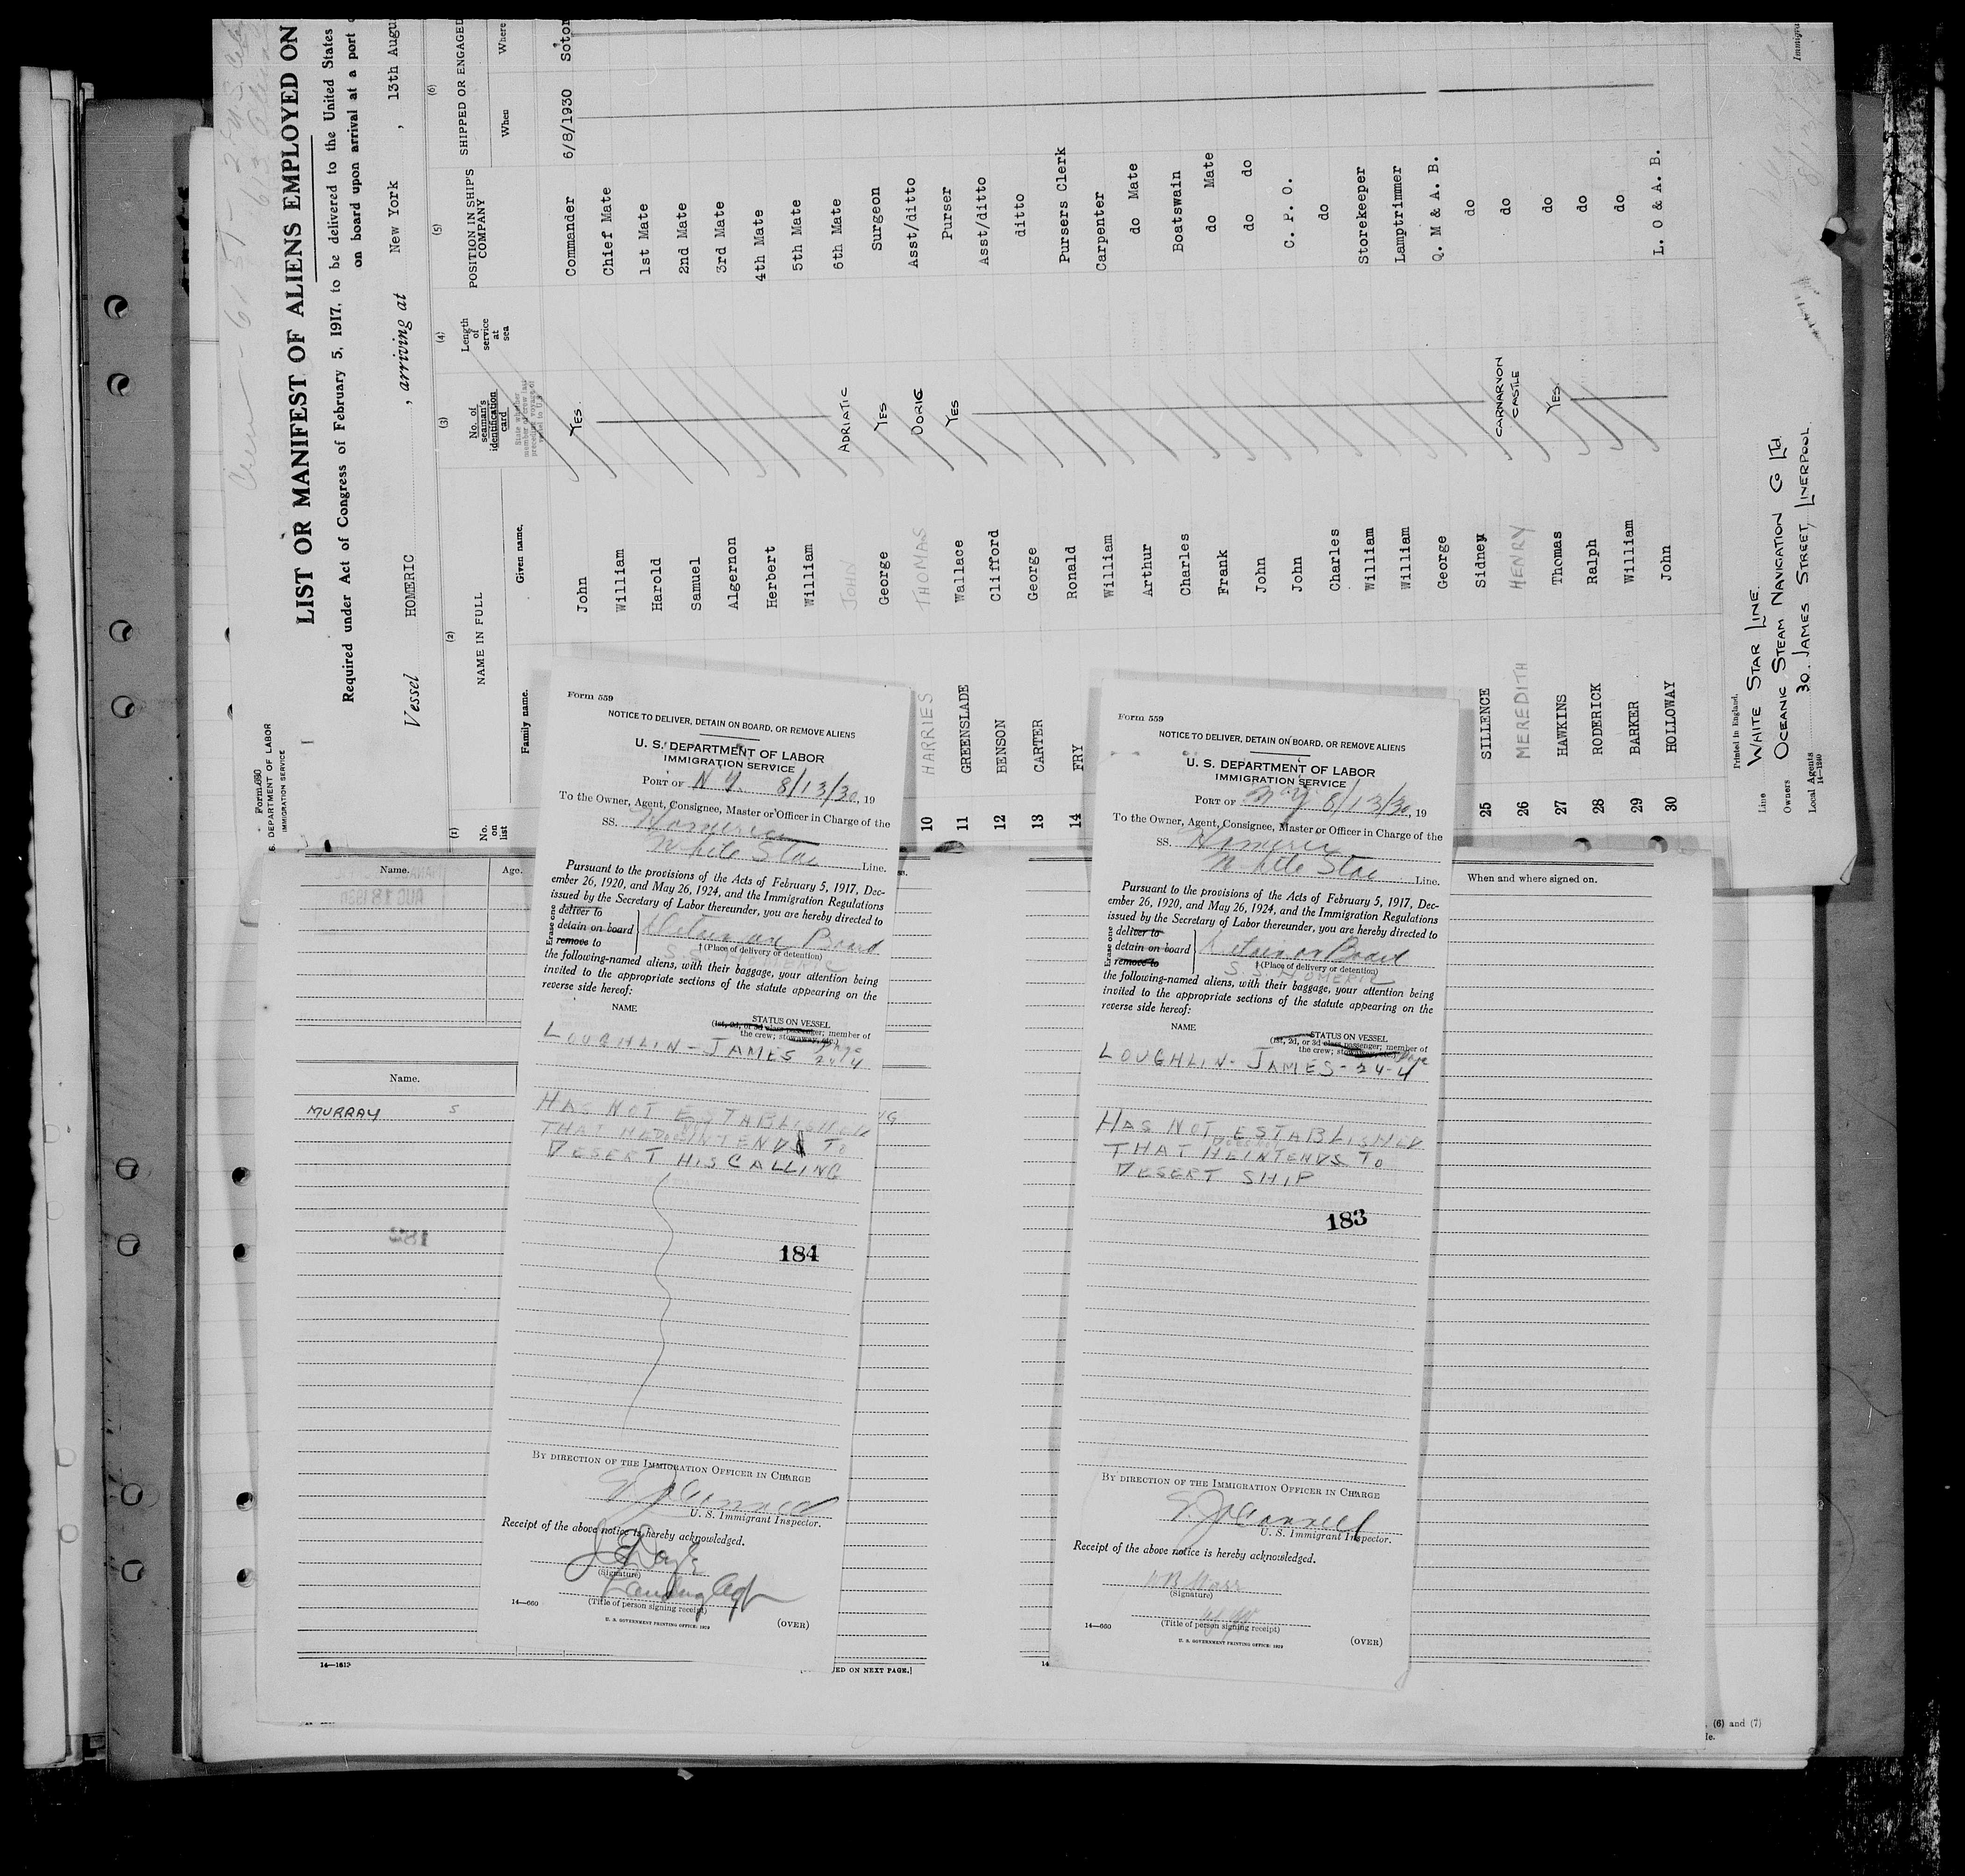 Form 680
S. DEPARTMENT OF LABOR
IMMIGRATION SERVICE
LIST OR MANIFEST OF ALIENS EMPLOYED ON
Required under Act of Congress of February 5, 1917, to be delivered to the United States
on board upon arrival at a port
Vessel HOMERIC , arriving at New York , 13th Augu
(1) (2) (3) (4) (5) (6)
No. on list
NAME IN FULL
Family name. Given name.
No. of seaman's identification card
Length of service at sea
POSITION IN SHIP'S COMPANY
SHIPPED OR ENGAGED
When Where
John YES Commander 6/8/1930 Soton
William Chief Mate
Harold 1st Mate
Samuel 2nd Mate
Algernon 3rd Mate
Herbert 4th Mate
William 5th Mate
JOHN ADRIATIC 6th Mate
George YES Surgeon
10 HARRIES THOMAS DORIC Asst/ditto
11 GREENSLADE Wallace YES Purser
12 BENSON Clifford Asst/ditto
13 CARTER George ditto
14 FRY Ronald Pursers Clerk
William Carpenter
Arthur do Mate
Charles Boatswain
Frank do Mate
John do do
John C. P. O.
Charles do
William Storekeeper
William Lamptrimmer
George Q. M & A. B.
25 SILLENCE Sidney do
26 MEREDITH HENRY CARNARVON CASTLE do
27 HAWKINS Thomas YES do
28 RODERICK Ralph do
29 BARKER William do
30 HOLLOWAY John L. O & A. B.
Printed in England.
Line WHITE STAR LINE.
Owners OCEANIC STEAM NAVIGATION CO LTD.
Local Agents 30. JAMES STREET, LINERPOOL.
14-1240
Immigra
Form 559
NOTICE TO DELIVER, DETAIN ON BOARD, OR REMOVE ALIENS
U. S. DEPARTMENT OF LABOR
IMMIGRATION SERVICE
PORT OF N. Y. 8/13/30, 19
To the Owner, Agent, Consignee, Master or Officer in Charge of the
SS. Homeric
White Star Line.
Pursuant to the provisions of the Acts of February 5, 1917, Dec-
ember 26, 1920, and May 26, 1924, and the Immigration Regulations
issued by the Secretary of Labor thereunder, you are hereby directed to
Erase one
deliver to
detain on board
remove to
Detain on Board
S.S. HOMERIC
(Place of delivery or detention)
the following-named aliens, with their baggage, your attention being
invited to the appropriate sections of the statute appearing on the
reverse side hereof:
NAME
STATUS ON VESSEL
(1st, 2d, or 3d class passenger; member of
the crew; stowaway, etc.)
LOUGHLIN - JAMES Page 24-4
HAS NOT ESTABLISHED
THAT HE INTENDS TO
DESERT HIS CALLING
184
BY DIRECTION OF THE IMMIGRATION OFFICER IN CHARGE
U. S. Immigrant Inspector.
Receipt of the above notice is hereby acknowledged.
(Signature)
Landing Agt
(Title of person signing receipt)
14—660
U. S. GOVERNMENT PRINTING OFFICE: 1929
(OVER)
Form 559
NOTICE TO DELIVER, DETAIN ON BOARD, OR REMOVE ALIENS
U. S. DEPARTMENT OF LABOR
IMMIGRATION SERVICE
PORT OF N Y 8/13/30, 19
To the Owner, Agent, Consignee, Master or Officer in Charge of the
SS. Homeric
White Star Line.
Pursuant to the provisions of the Acts of February 5, 1917, Dec-
ember 26, 1920, and May 26, 1924, and the Immigration Regulations
issued by the Secretary of Labor thereunder, you are hereby directed to
Erase one
deliver to
detain on board
remove to
Detain on Board
S.S. HOMERIC
(Place of delivery or detention)
the following-named aliens, with their baggage, your attention being
invited to the appropriate sections of the statute appearing on the
reverse side hereof:
NAME
STATUS ON VESSEL
(1st, 2d, or 3d class passenger; member of
the crew; stowaway, etc.)
LOUGHLIN - JAMES - Page 24-4
HAS NOT ESTABLISHED
THAT HE INTENDS TO
DESERT SHIP
183
BY DIRECTION OF THE IMMIGRATION OFFICER IN CHARGE
U. S. Immigrant Inspector.
Receipt of the above notice is hereby acknowledged.
(Signature)
(Title of person signing receipt)
14—660
U. S. GOVERNMENT PRINTING OFFICE: 1929
(OVER)
Name. Age.
When and where signed on.
Name.
MURRAY
14—1613
ED ON NEXT PAGE.]
(6) and (7)